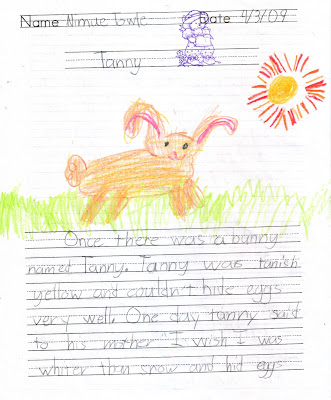 Name Nimue Towle Date 4/3/09
Tanny
Once there was a bunny
named Tanny. Tanny was tanish
yellow and couldn't hide eggs
very well. One day tanny said
to his mother "I wish I was
whiter than snow and hid eggs